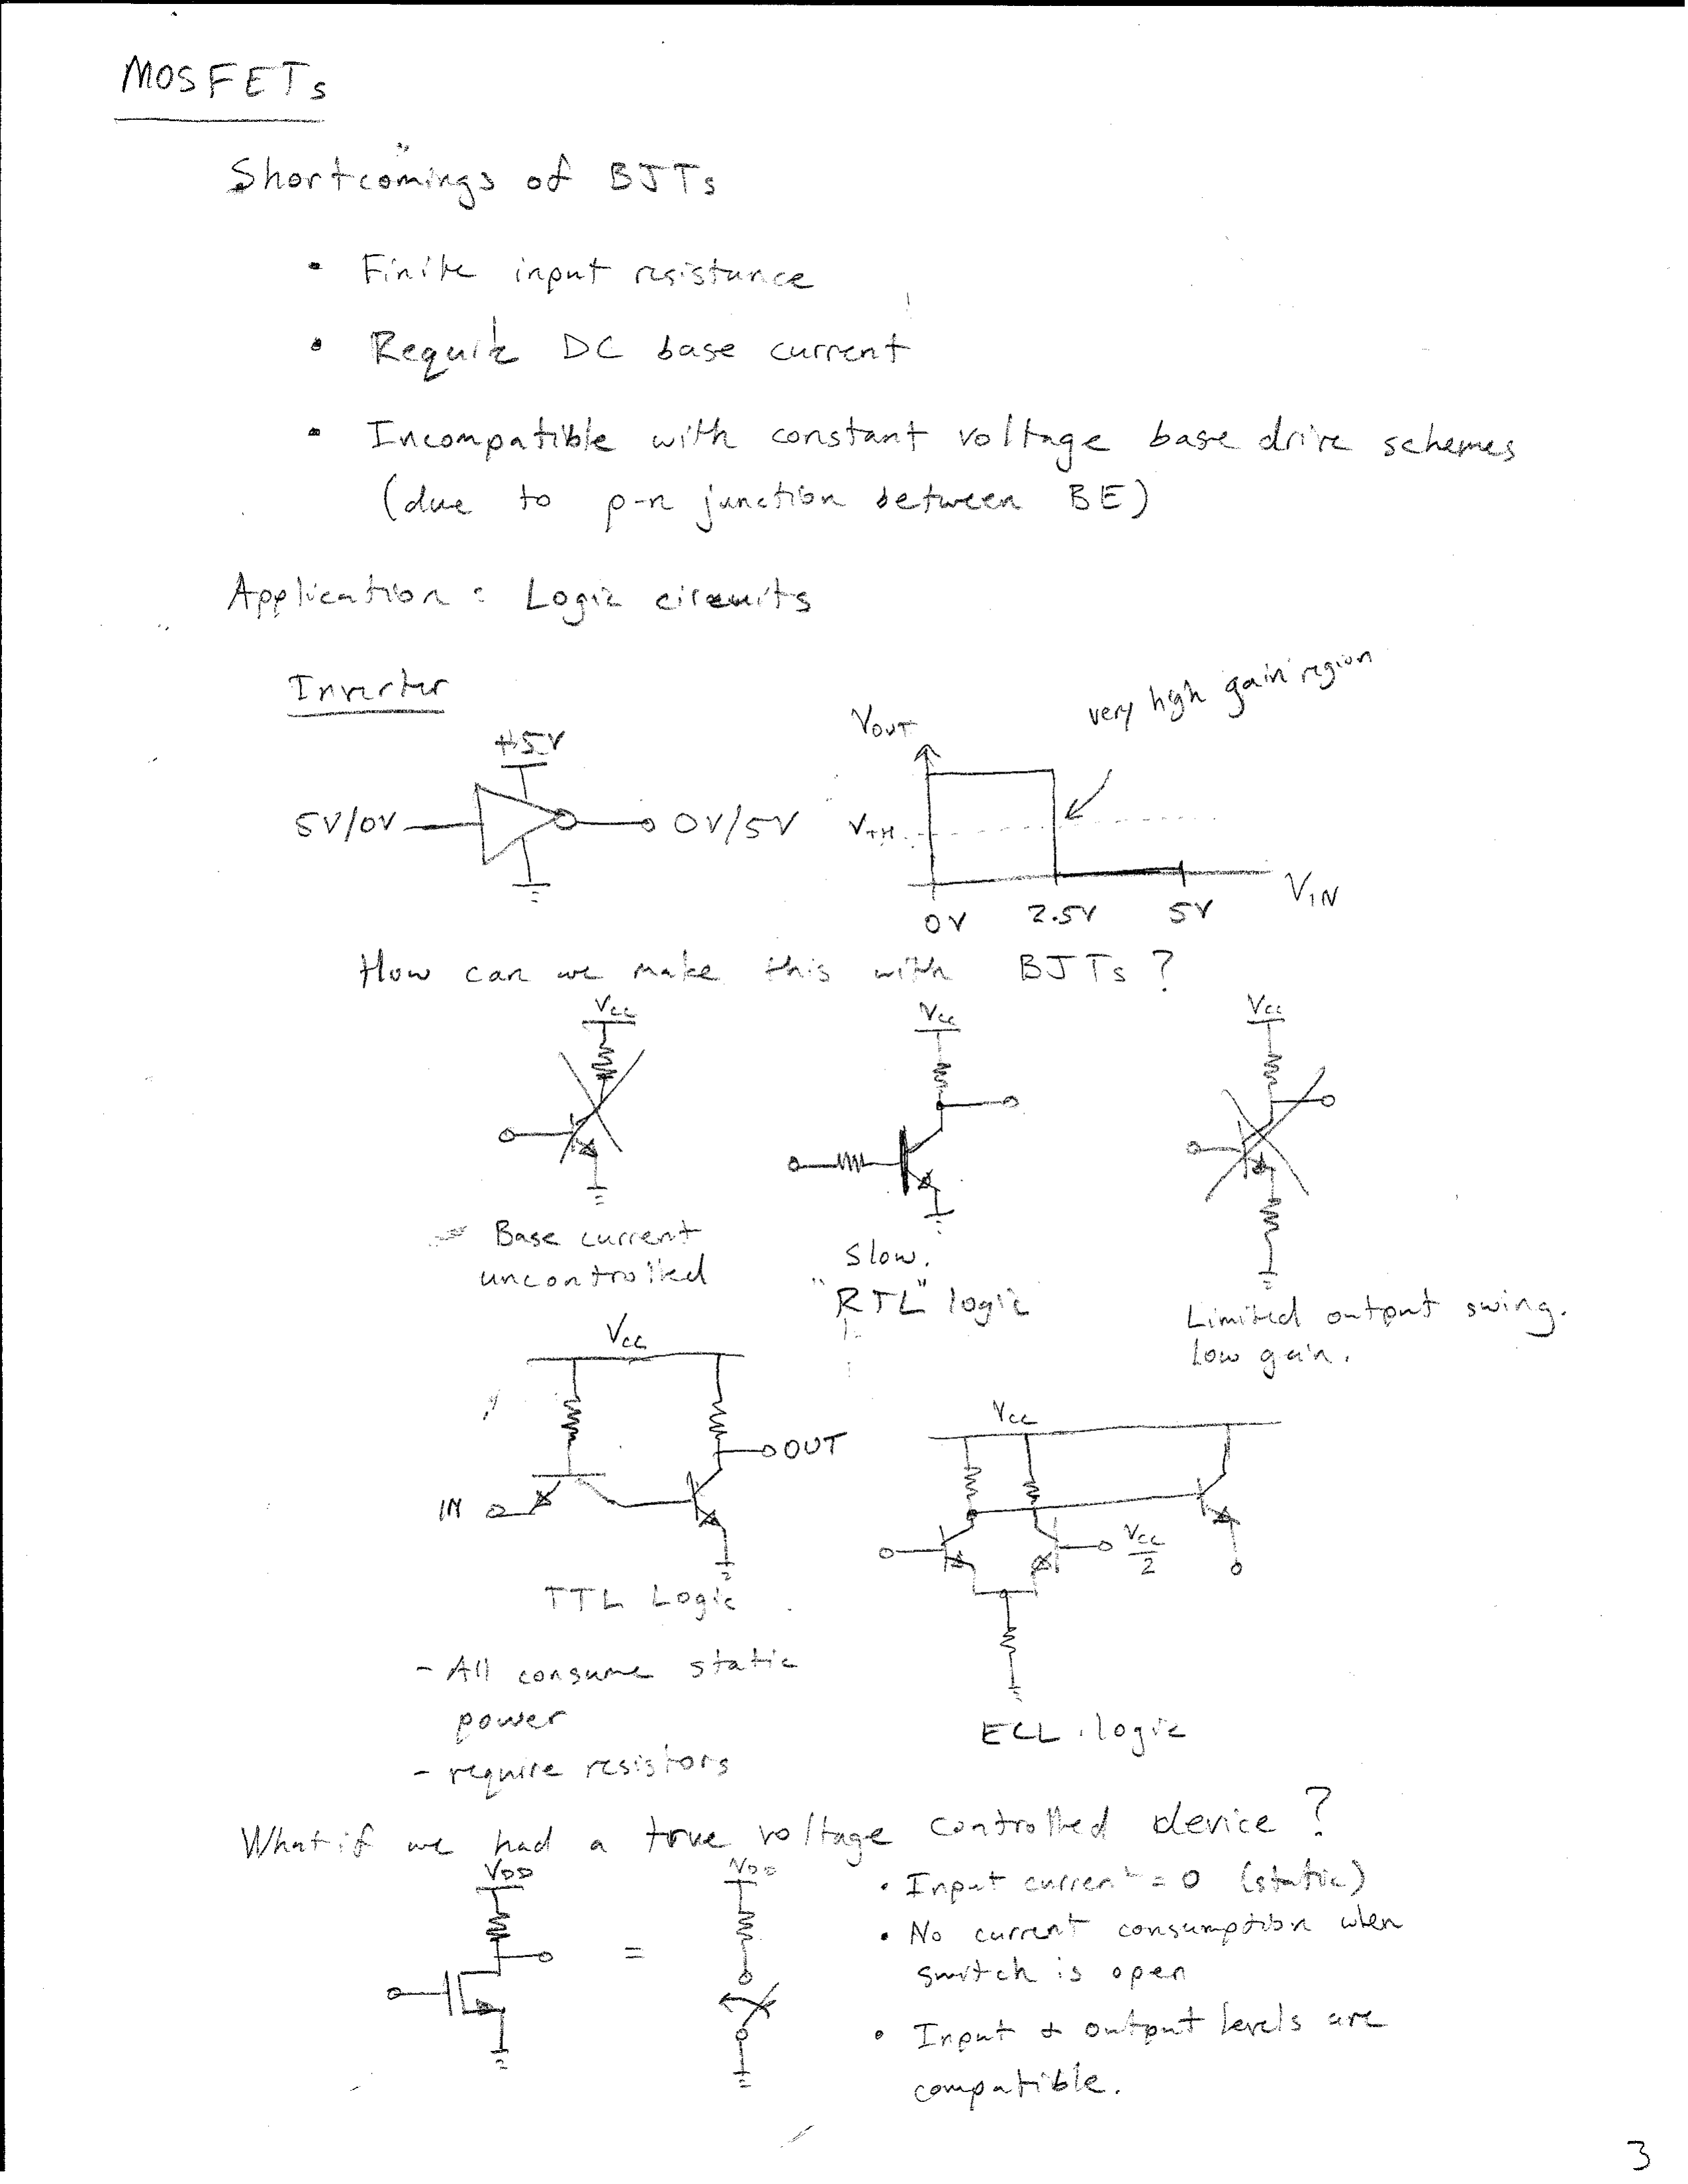 MOSFETs
Shortcomings of BJTs
• Finite input resistance
• Require DC base current
• Incompatible with constant voltage base drive schemes
(due to p-n junction between BE)
Application: Logic circuits
Inverter
+5V
5V/0V
0V/5V
VOUT
very high gain region
VTH
0V
2.5V
5V
VIN
How can we make this with BJTs?
Vcc
Vcc
Vcc
Base current
uncontrolled
Slow.
"RTL" logic
Limited output swing.
Low gain.
Vcc
OUT
IN
TTL Logic
Vcc
Vcc/2
ECL logic
- All consume static
power
- require resistors
What if we had a true voltage controlled device?
VDD
=
VDD
• Input current = 0 (static)
• No current consumption when
switch is open
• Input + output levels are
compatible.
3